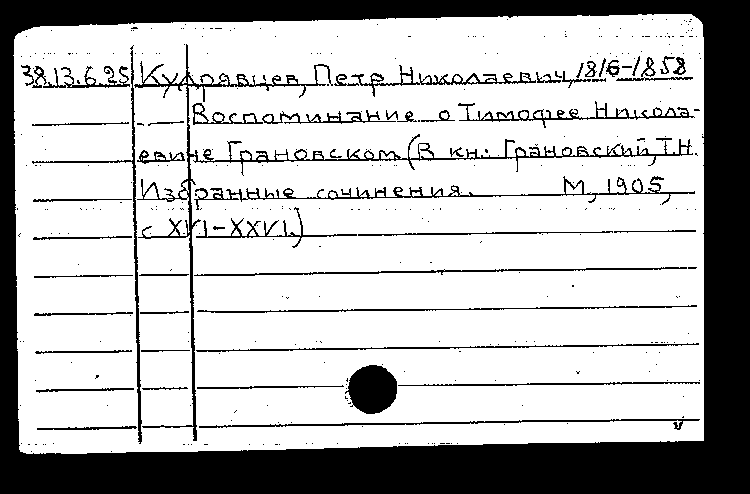 38.13.6.25 Кудрявцев, Петр Николаевич, 1816-1858
Воспоминание о Тимофее Никола-
евиче Грановском (В кн.: Грановский, Т.Н.
Избранные сочинения. М, 1905,
с XVI-XXVI.)